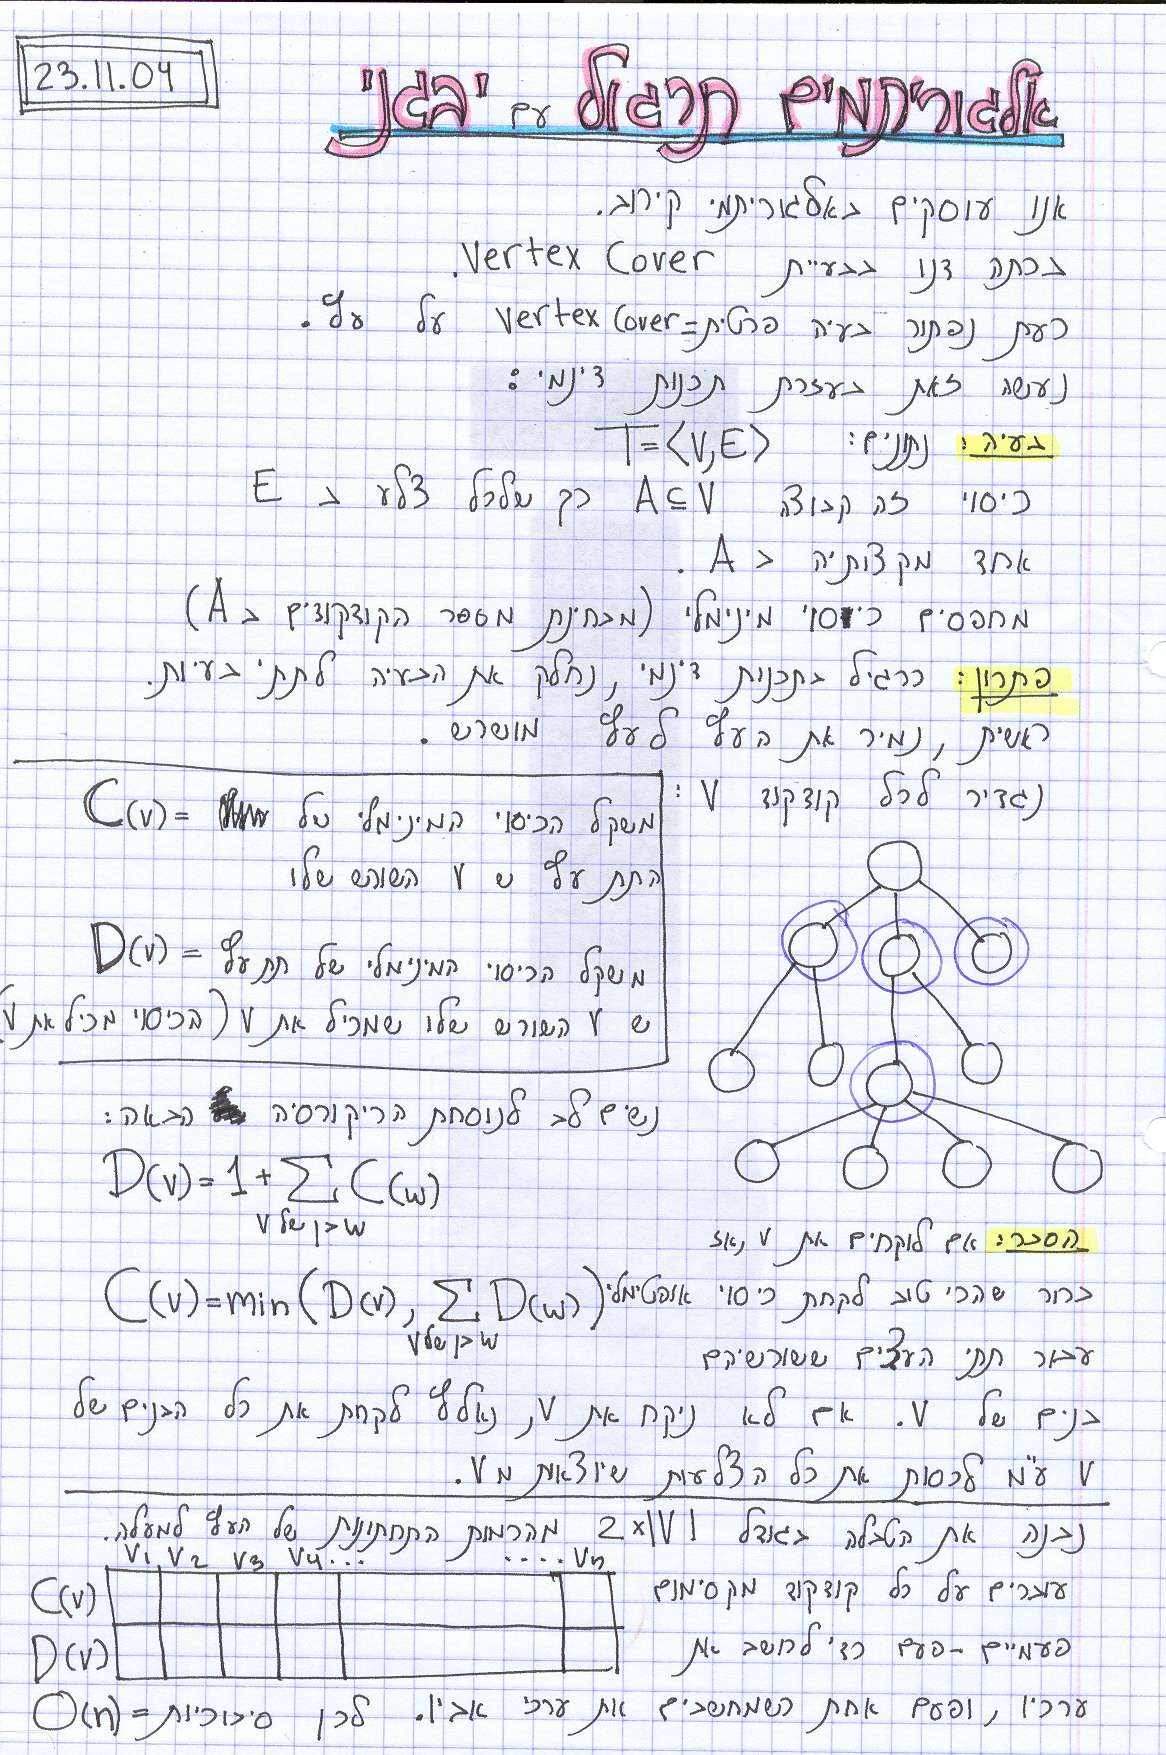 23.11.04
אלגוריתמים תרגול עם יבגני
אנו עוסקים באלגוריתמי קירוב.
בכתה דנו בבעיית Vertex Cover.
כעת נפתור בעיה פרטית=Vertex Cover על עץ.
נעשה זאת בעזרת תכנות דינמי:
בעיה: נתונים: T=<V,E>
כיסוי זה קבוצה A⊆V כך שלכל צלע ב E
אחד מקצותיה ב A.
מחפסים כיסוי מינימלי (מבחינת מספר הקודקודים ב A)
פתרון: כרגיל בתכנות דינמי, נחלק את הבעיה לתתי בעיות.
ראשית, נמיר את העץ לעץ מושרש.
נגדיר לכל קודקוד v:
C(v)= משקל הכיסוי המינימלי של
התת עץ ש v השורש שלו
D(v)= משקל הכיסוי המינימלי של תת עץ
ש v השורש שלו שמכיל את v (הכיסוי מכיל את v)
נשים לב לנוסחת הריקורסיה הבאה:
D(v)=1+∑C(w)
w בן של v
הסבר: אם לוקחים את v, אז
C(v)=min(D(v),∑D(w))
w בן של v
ברור שהכי טוב לקחת כיסוי אופטימלי
עבור תתי העצים ששורשיהם
בנים של v. אם לא ניקח את v, נאלץ לקחת את כל הבנים של
v ע"מ לכסות את כל הצלעות שיוצאות מ v.
נבנה את הטבלה בגודל 2x|V| מהרמות התחתונות של העץ למעלה.
v1 v2 v3 v4 ... .... vn
C(v)
D(v)
עוברים על כל קודקוד מקסימום
פעמיים - פעם כדי לחשב את
ערכיו, ופעם אחת כשמחשבים את ערכי אביו. לכן סיבוכיות=O(n)